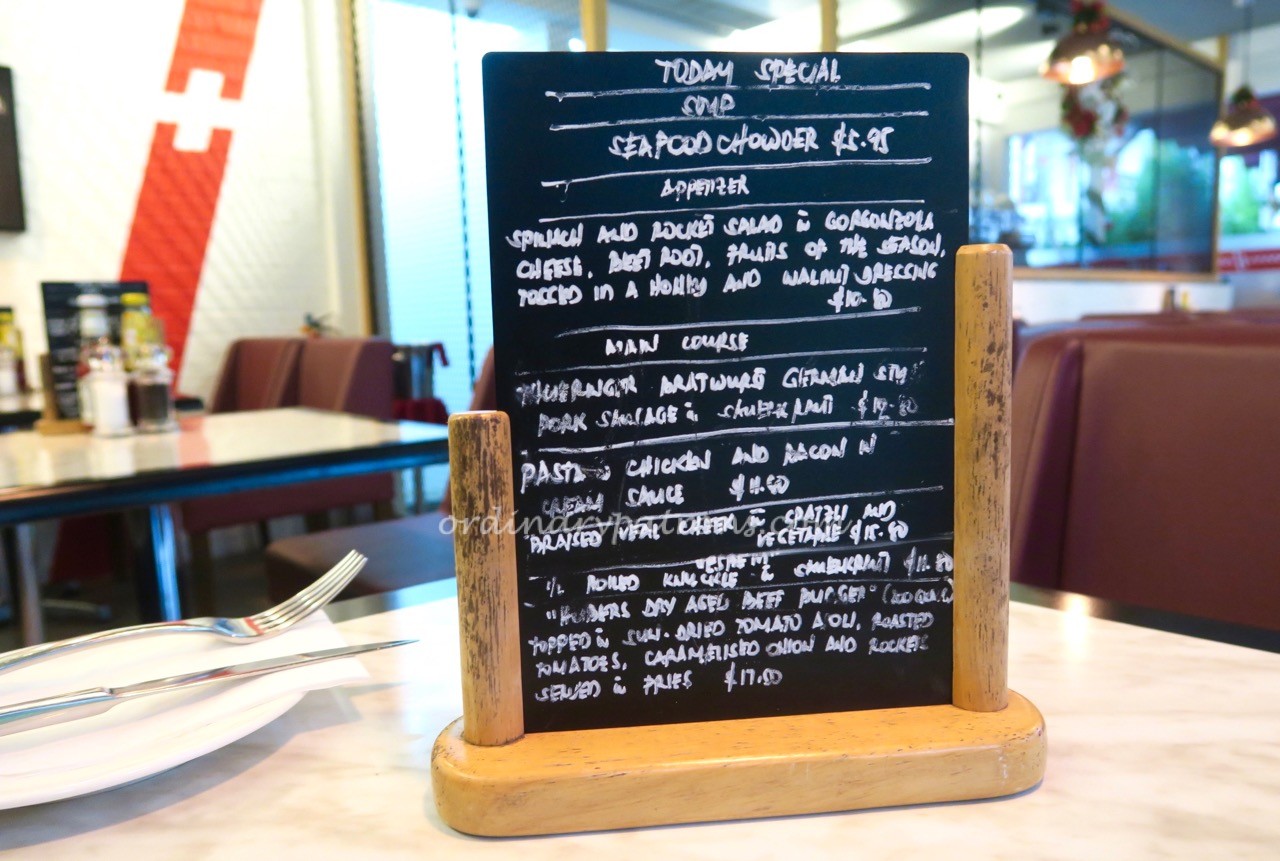 TODAY SPECIAL
SOUP
SEAFOOD CHOWDER $5.95
APPETIZER
SPINACH AND ROCKET SALAD IN GORGONZOLA
CHEESE, BEET ROOT, FRUITS OF THE SEASON,
TOSSED IN A HONEY AND WALNUT DRESSING
$10.80
MAIN COURSE
BRATWURST GERMAN
PORK SAUSAGE SAUERKRAUT
PASTA CHICKEN AND BACON IN
CREAM SAUCE $11.80
ordinarypatrons.com
BRAISED VEAL CHEEK SPATZLI AND
VEGETABLE $15.80
1/2 BOILED KNUCKLE SAUERKRAUT $11.80
"HUBERS DRY AGED BEEF BURGER"
TOPPED SUN-DRIED TOMATO AIOLI, ROASTED
TOMATOES, CARAMELISED ONION AND ROCKETS
SERVED FRIES $17.80